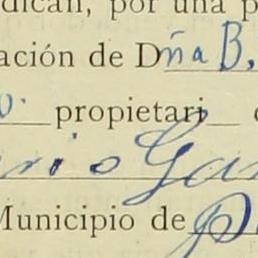 dican, por una p
ación de Dña B.
propietari
rio Gar
Municipio de